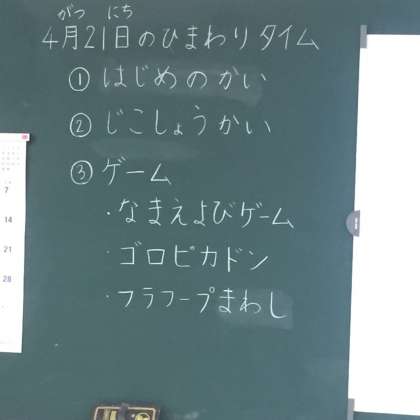 がつ にち
4月21日のひまわりタイム
① はじめのかい
② じこしょうかい
③ ゲーム
・なまえよびゲーム
・ゴロピカドン
・フラフープまわし
7
14
21
28